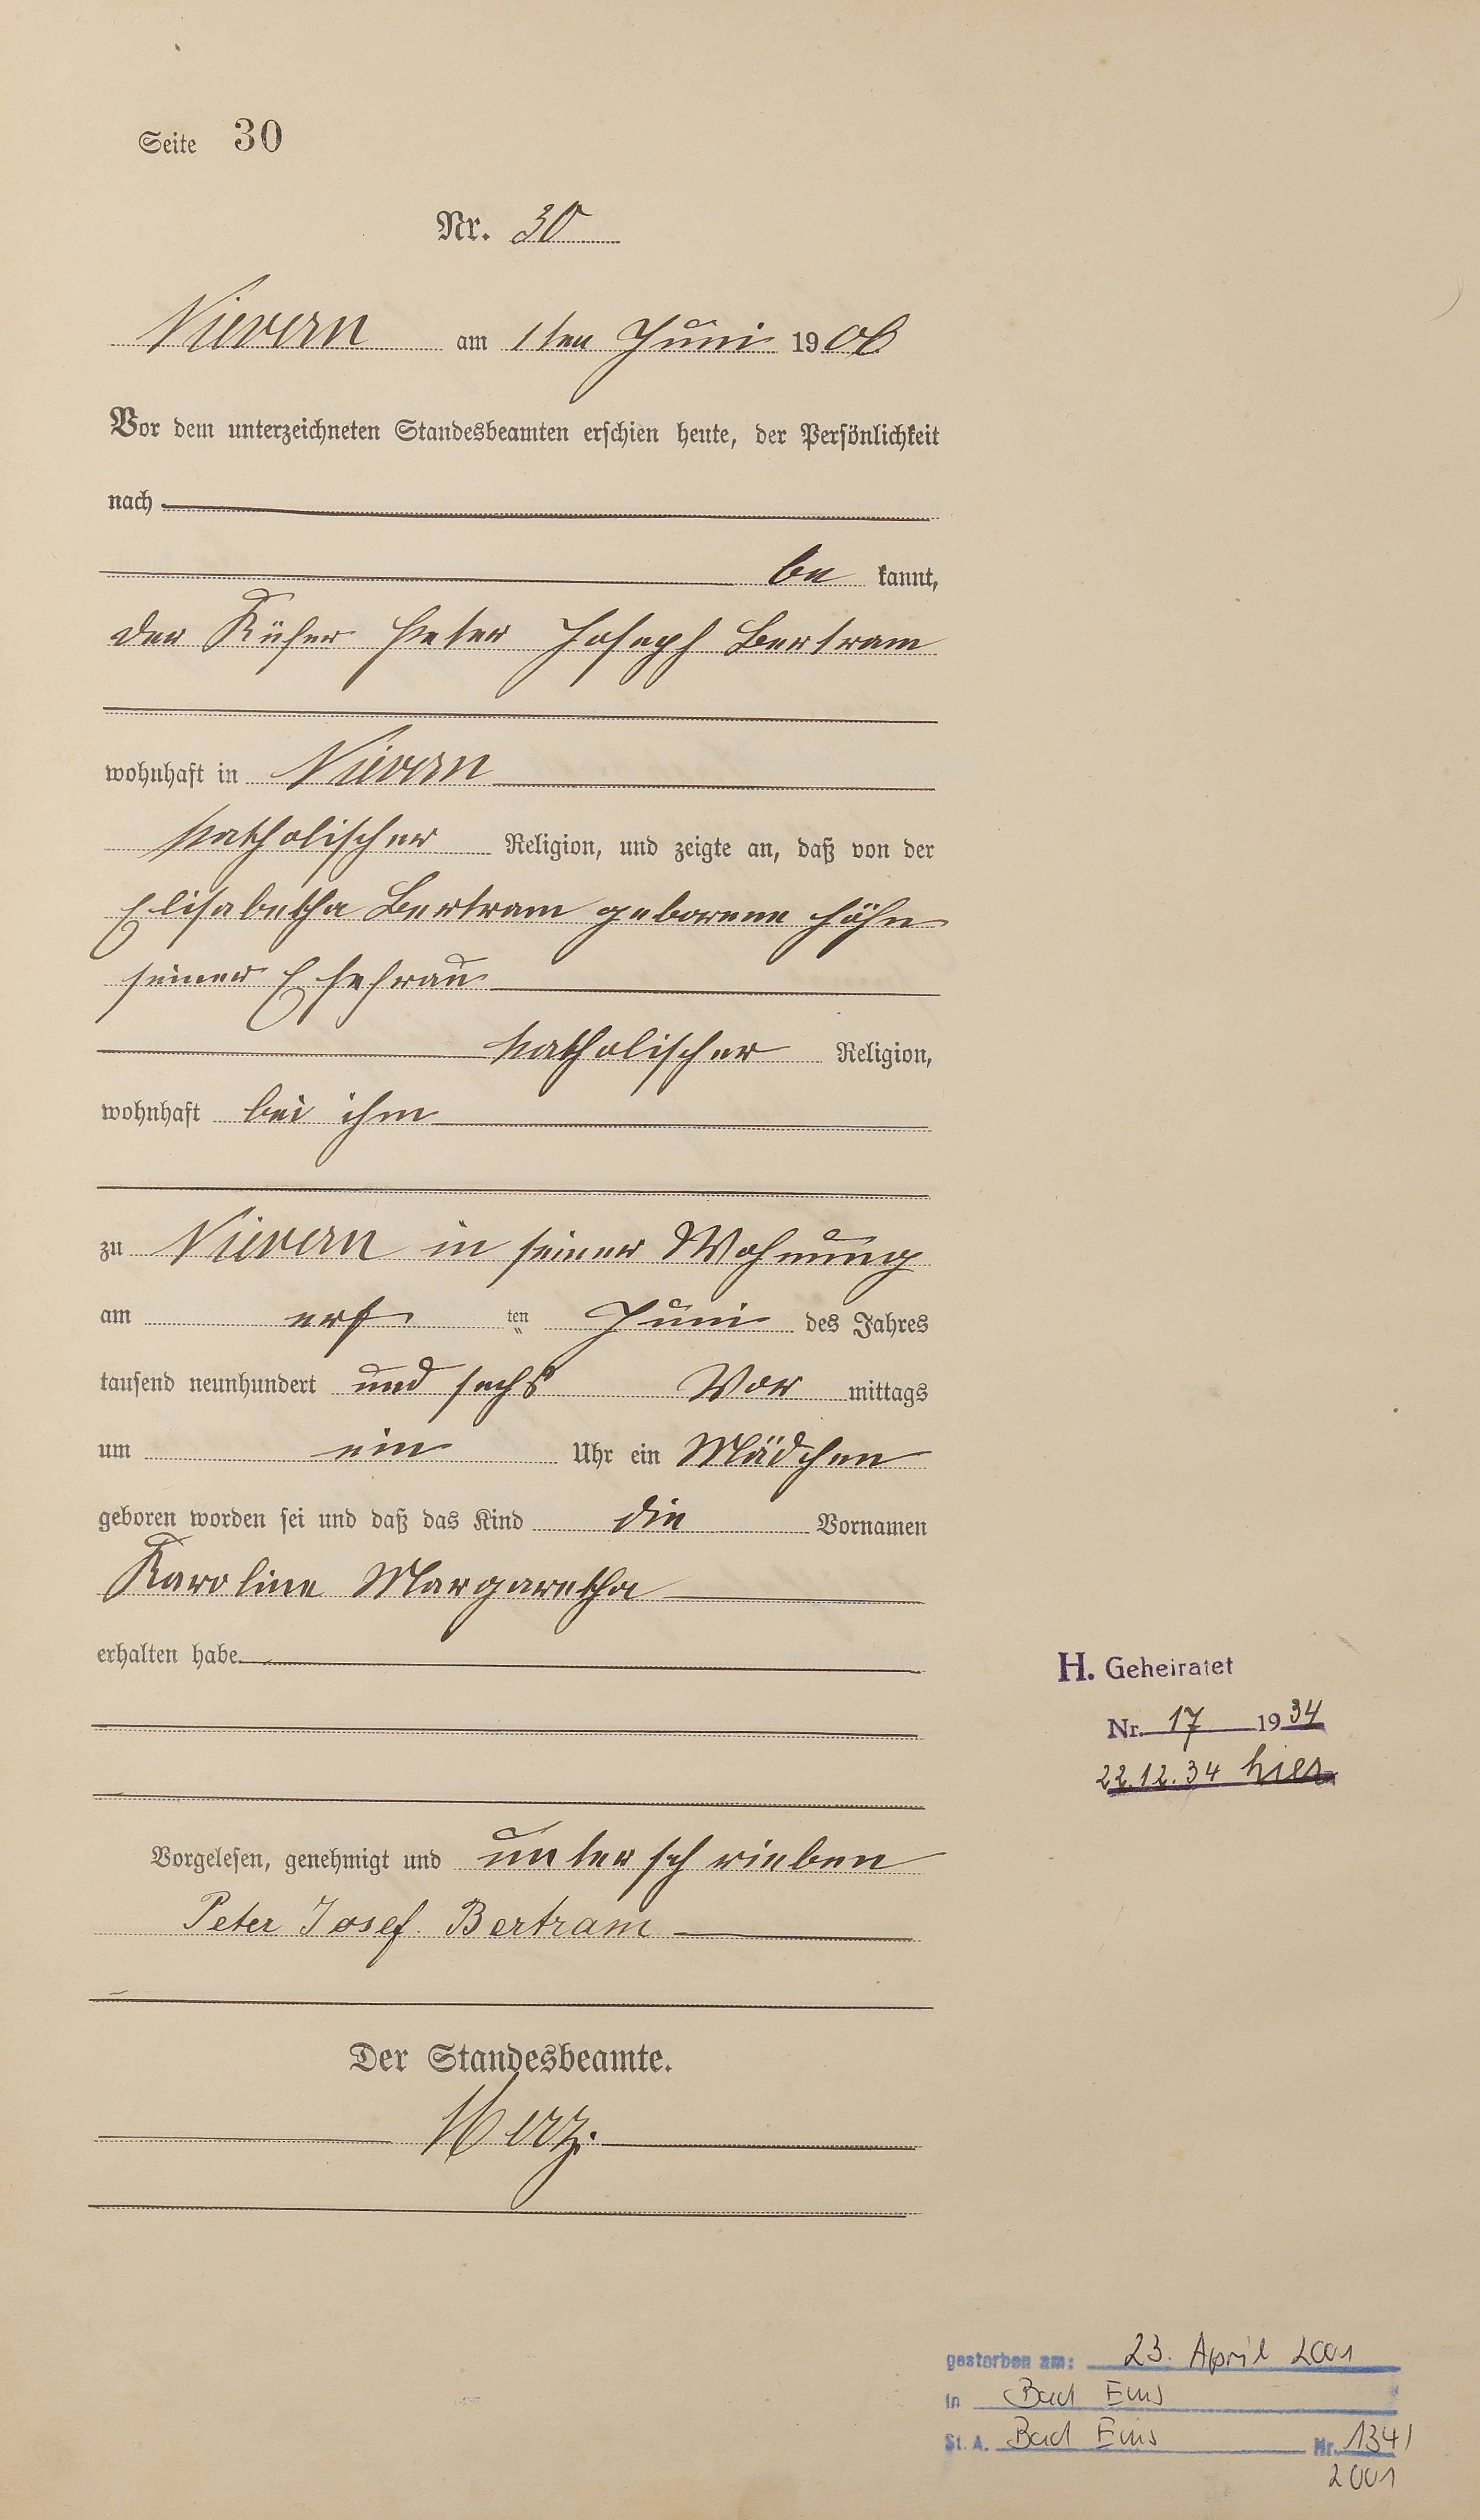 Seite 30
Nr. 30
Nievern am 1ten Juni 1906
Vor dem unterzeichneten Standesbeamten erschien heute, der Persönlichkeit
nach
be kannt,
der Küfer Peter Joseph Bertram
wohnhaft in Nievern
katholischer Religion, und zeigte an, daß von der
Elisabetha Bertram geborene Höhn
seiner Ehefrau
katholischer Religion,
wohnhaft bei ihm
zu Nievern in seiner Wohnung
am ers ten Juni des Jahres
tausend neunhundert und sechs Vor mittags
um ein Uhr ein Mädchen
geboren worden sei und daß das Kind die Vornamen
Karoline Margaretha
erhalten habe
H. Geheiratet
Nr. 17 1934
22.12.34 hier
Vorgelesen, genehmigt und unterschrieben
Peter Josef Bertram
Der Standesbeamte.
Herz.
gestorben am: 23. April 2001
in Bad Ems
St. A. Bad Ems Nr. 134/
2001